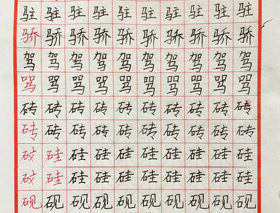 驻驻驻驻驻驻驻驻驻
骄骄骄骄骄骄骄骄骄
驾驾驾驾驾驾驾驾驾
骂骂骂骂骂骂骂骂骂
砖砖砖砖砖砖砖砖砖
砖砖砖砖砖砖砖砖砖
硅硅硅硅硅硅硅硅
硅硅硅硅硅硅硅硅
砚砚砚砚砚砚砚砚砚